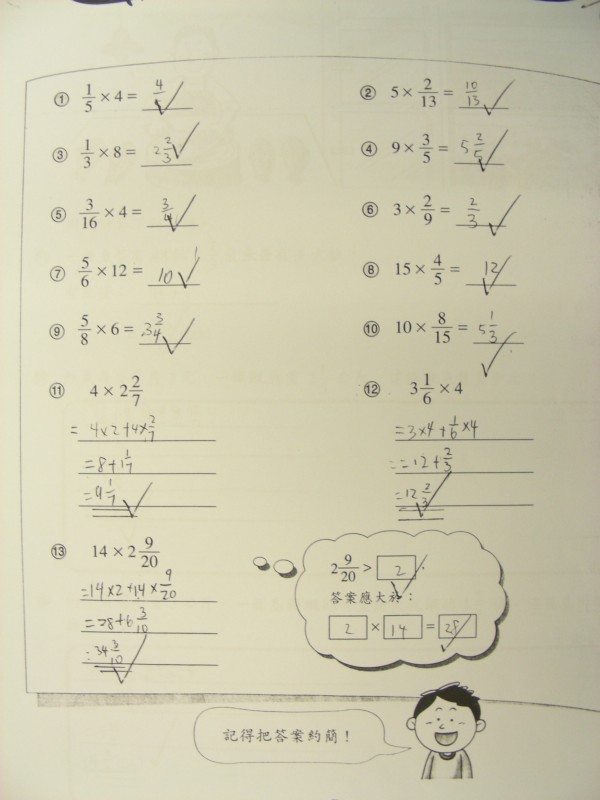 ① 1/5 × 4 = 4/5
② 5 × 2/13 = 10/13
③ 1/3 × 8 = 2 2/3
④ 9 × 3/5 = 5 2/5
⑤ 3/16 × 4 = 3/4
⑥ 3 × 2/9 = 2/3
⑦ 5/6 × 12 = 10
⑧ 15 × 4/5 = 12
⑨ 5/8 × 6 = 3 3/4
⑩ 10 × 8/15 = 5 1/3
⑪ 4 × 2 2/7
= 4×2+4×2/7
= 8+1 1/7
= 9 1/7
⑫ 3 1/6 × 4
= 3×4+1/6×4
= = 12+2/3
= 12 2/3
⑬ 14 × 2 9/20
= 14×2+14×9/20
= 28+6 3/10
= 34 3/10
2 9/20 > 2 .
答案應大於：
2 × 14 = 28
記得把答案約簡！